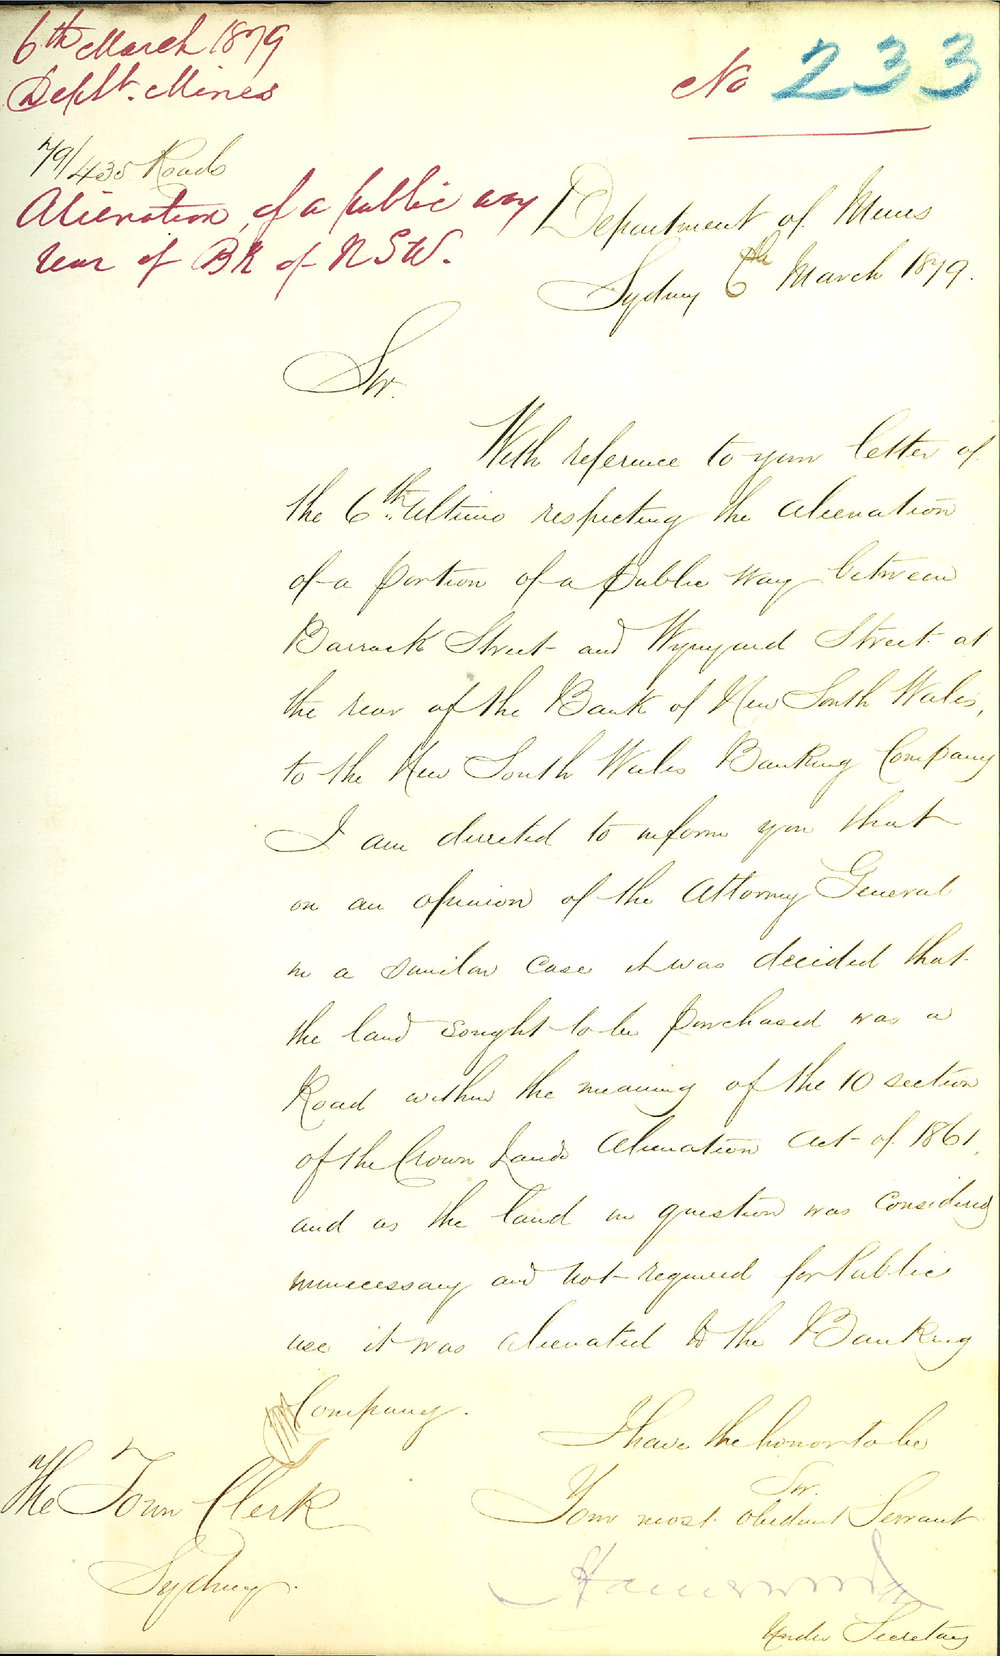 6th March 1879
Deptt. Mines
No 233
79/435 Roads
Alienation of a public way
rear of BK of NSW.
Department of Mines
Sydney 6th March 1879.
Sir.
With reference to your letter of
the 6th. Ultimo respecting the alienation
of a portion of a Public Way between
Barrack Street and Wynyard Street at
the rear of the Bank of New South Wales,
to the New South Wales Banking Company
I am directed to inform you that
on an opinion of the Attorney General
in a similar case it was decided that
the land sought to be purchased was a
Road within the meaning of the 10 section
of the Crown Lands Alienation Act of 1861,
and as the land in question was considered
unnecessary and not required for Public
use it was alienated to the Banking
Company.
I have the honor to be
Sir.
Your most obedient Servant
Under Secretary
The Town Clerk
Sydney.